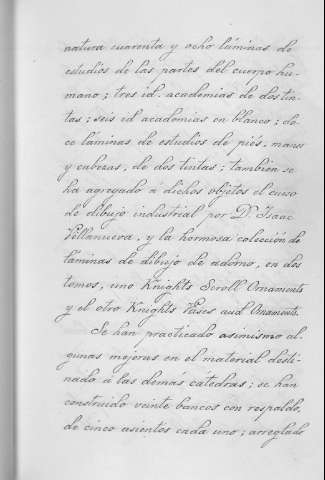 natura cuarenta y ocho láminas de
estudios de las partes del cuerpo hu-
mano; tres id. academias de dos tin-
tas; seis id academias en blanco; do-
ce láminas de estudios de piés, manos
y cabezas, de dos tintas; tambien se
ha agregado á dichos objetos el curso
de dibujo industrial por D. Isaac
Villanueva, y la hermosa colección de
láminas de dibujo de adorno, en dos
tomos, uno Knights Scroll Ornaments
y el otro Knights Vases aud Onaments.
Se han practicado asimismo al-
gunas mejoras en el material desti-
nado á las demás cátedras; se han
construido veinte bancos con respaldo,
de cinco asientos cada uno; arreglado